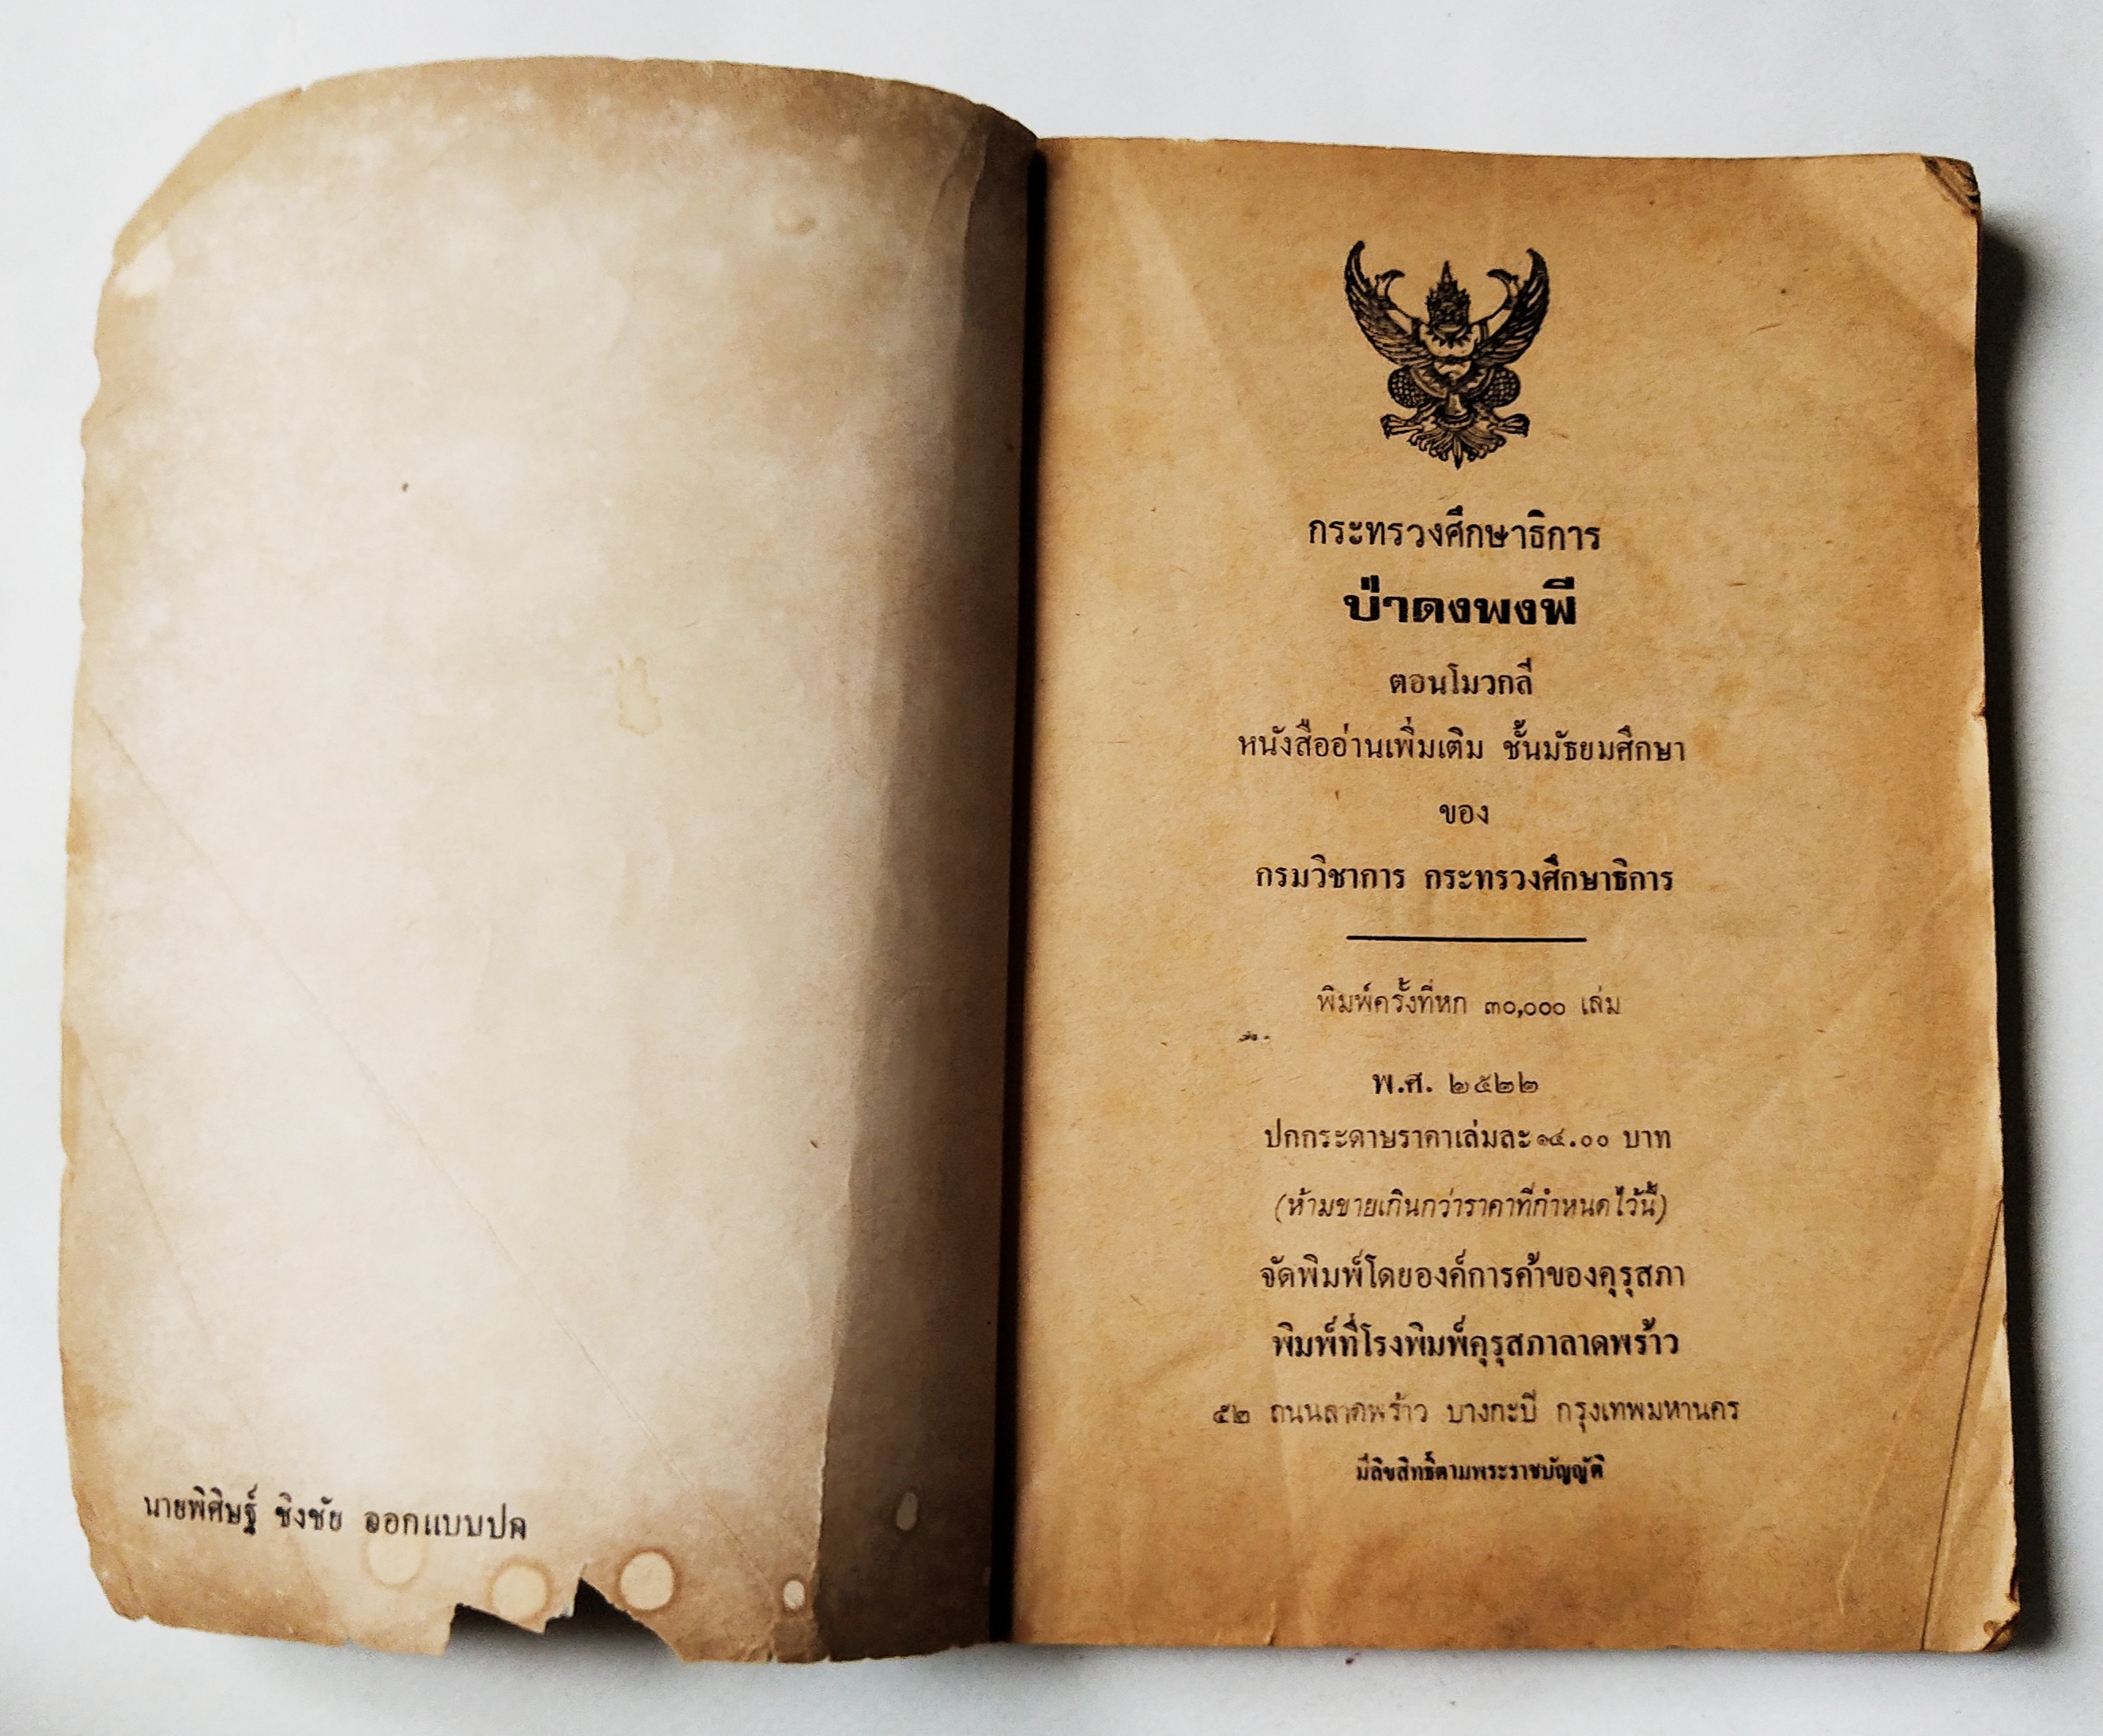 นายพิศิษฐ์ ชิงชัย ออกแบบปก
กระทรวงศึกษาธิการ
ป่าดงพงพี
ตอนโมวกลี
หนังสืออ่านเพิ่มเติม ชั้นมัธยมศึกษา
ของ
กรมวิชาการ กระทรวงศึกษาธิการ
พิมพ์ครั้งที่หก ๓๐,๐๐๐ เล่ม
พ.ศ. ๒๕๒๒
ปกกระดาษราคาเล่มละ ๑๔.๐๐ บาท
(ห้ามขายเกินกว่าราคาที่กำหนดไว้นี้)
จัดพิมพ์โดยองค์การค้าของคุรุสภา
พิมพ์ที่โรงพิมพ์คุรุสภาลาดพร้าว
๕๒ ถนนลาดพร้าว บางกะปี กรุงเทพมหานคร
มีลิขสิทธิ์ตามพระราชบัญญัติ